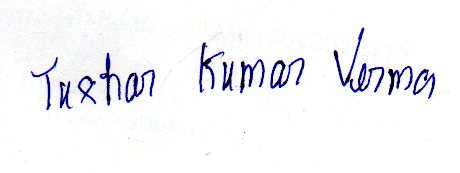 Tushar Kumar Verma